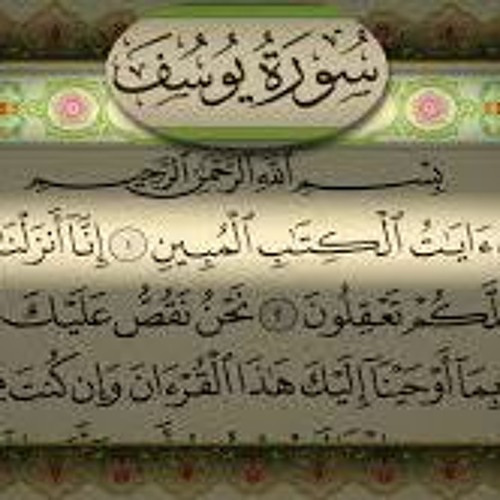 سُورَةُ يُوسُفَ
بِسْمِ ٱللَّهِ ٱلرَّحْمَٰنِ ٱلرَّحِيمِ
ءَايَٰتُ ٱلْكِتَٰبِ ٱلْمُبِينِ ١ إِنَّآ أَنزَلْنَٰ
لَّكُمْ تَعْقِلُونَ ٢ نَحْنُ نَقُصُّ عَلَيْكَ
بِمَآ أَوْحَيْنَآ إِلَيْكَ هَٰذَا ٱلْقُرْءَانَ وَإِن كُنتَ